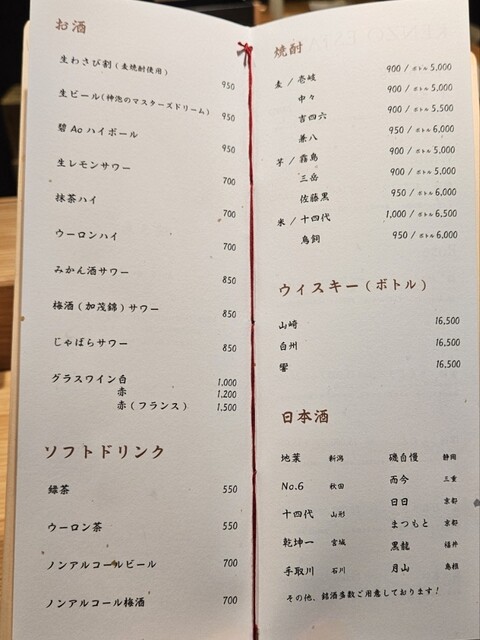 お酒
生わさび割(麦焼酎使用) 950
生ビール(神泡のマスターズドリーム) 950
碧Aoハイボール 950
生レモンサワー 700
抹茶ハイ 700
ウーロンハイ 700
みかん酒サワー 850
梅酒(加茂錦)サワー 850
じゃばらサワー 850
グラスワイン白 1,000
赤 1,200
赤(フランス) 1,500
ソフトドリンク
緑茶 550
ウーロン茶 550
ノンアルコールビール 700
ノンアルコール梅酒 700
焼酎
麦/壱岐 900/ボトル5,000
中々 900/ボトル5,000
吉四六 900/ボトル5,500
兼八 950/ボトル6,000
芋/霧島 900/ボトル5,000
三岳 900/ボトル5,000
佐藤黒 950/ボトル6,000
米/十四代 1,000/ボトル6,500
鳥飼 950/ボトル6,000
ウィスキー(ボトル)
山崎 16,500
白州 16,500
響 16,500
日本酒
地葉 新潟 磯自慢 静岡
No.6 秋田 而今 三重
十四代 山形 日日 京都
乾坤一 宮城 まつもと 京都
手取川 石川 黒龍 福井
月山 島根
その他、銘酒多数ご用意しております!